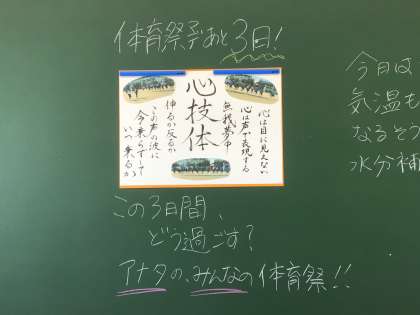 体育祭予あと3日!
心は目に見えない
心は声で表現する
無我夢中
心技体
伸るか反るか
この声の波に
今乗らずして
いつ乗るか
この3日間、
どう過ごす?
アナタの、みんなの体育祭!!
今日は
気温も
なるそう
水分補